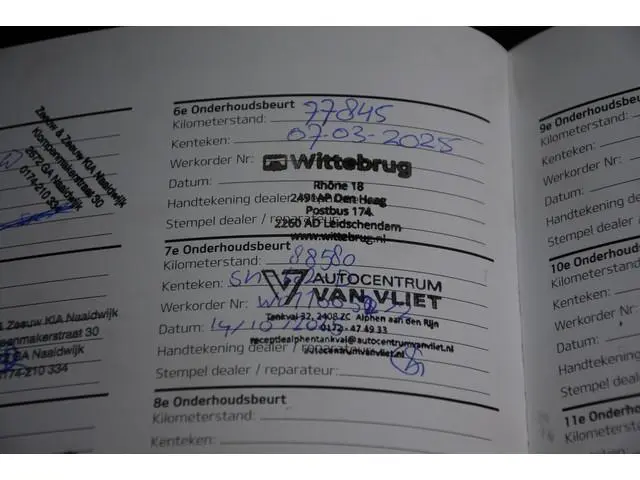 Zeeuw & Zeeuw KIA Naaldwijk
2672 GA Naaldwijk
0174-210 33
Zeeuw KIA Naaldwijk
nmakerstraat 30
GA Naaldwijk
0174-210 334
6e Onderhoudsbeurt
Kilometerstand: 77845
Kenteken: 07-03-2025
Werkorder Nr: Wittebrug
Datum: Rhône 18
Handtekening dealer 2491AP Den Haag
Postbus 174
Stempel dealer / reparateur:
2260 AD Leidschendam
www.wittebrug.nl
7e Onderhoudsbeurt
Kilometerstand: 88580
Kenteken:
AUTOCENTRUM
Werkorder Nr:
VAN VLIET
Tankval 32, 2408 ZC Alphen aan den Rijn
Datum: 14/10/
0172 - 47.49.33
receptiealphentankval@autocentrumvanvliet.nl
Handtekening dealer / reparateur:
autocentrumvanvliet.nl
Stempel dealer / reparateur:
8e Onderhoudsbeurt
Kilometerstand:
Kenteken:
9e Onderho
Kilometerstan
Kenteken:
Werkorder Nr
Datum:
Handtekening
Stempel deale
10e Onderho
Kilometerstan
Kenteken:
Werkorder N
Datum:
Handtekenin
Stempel dea
11e Onderh
Kilometersta